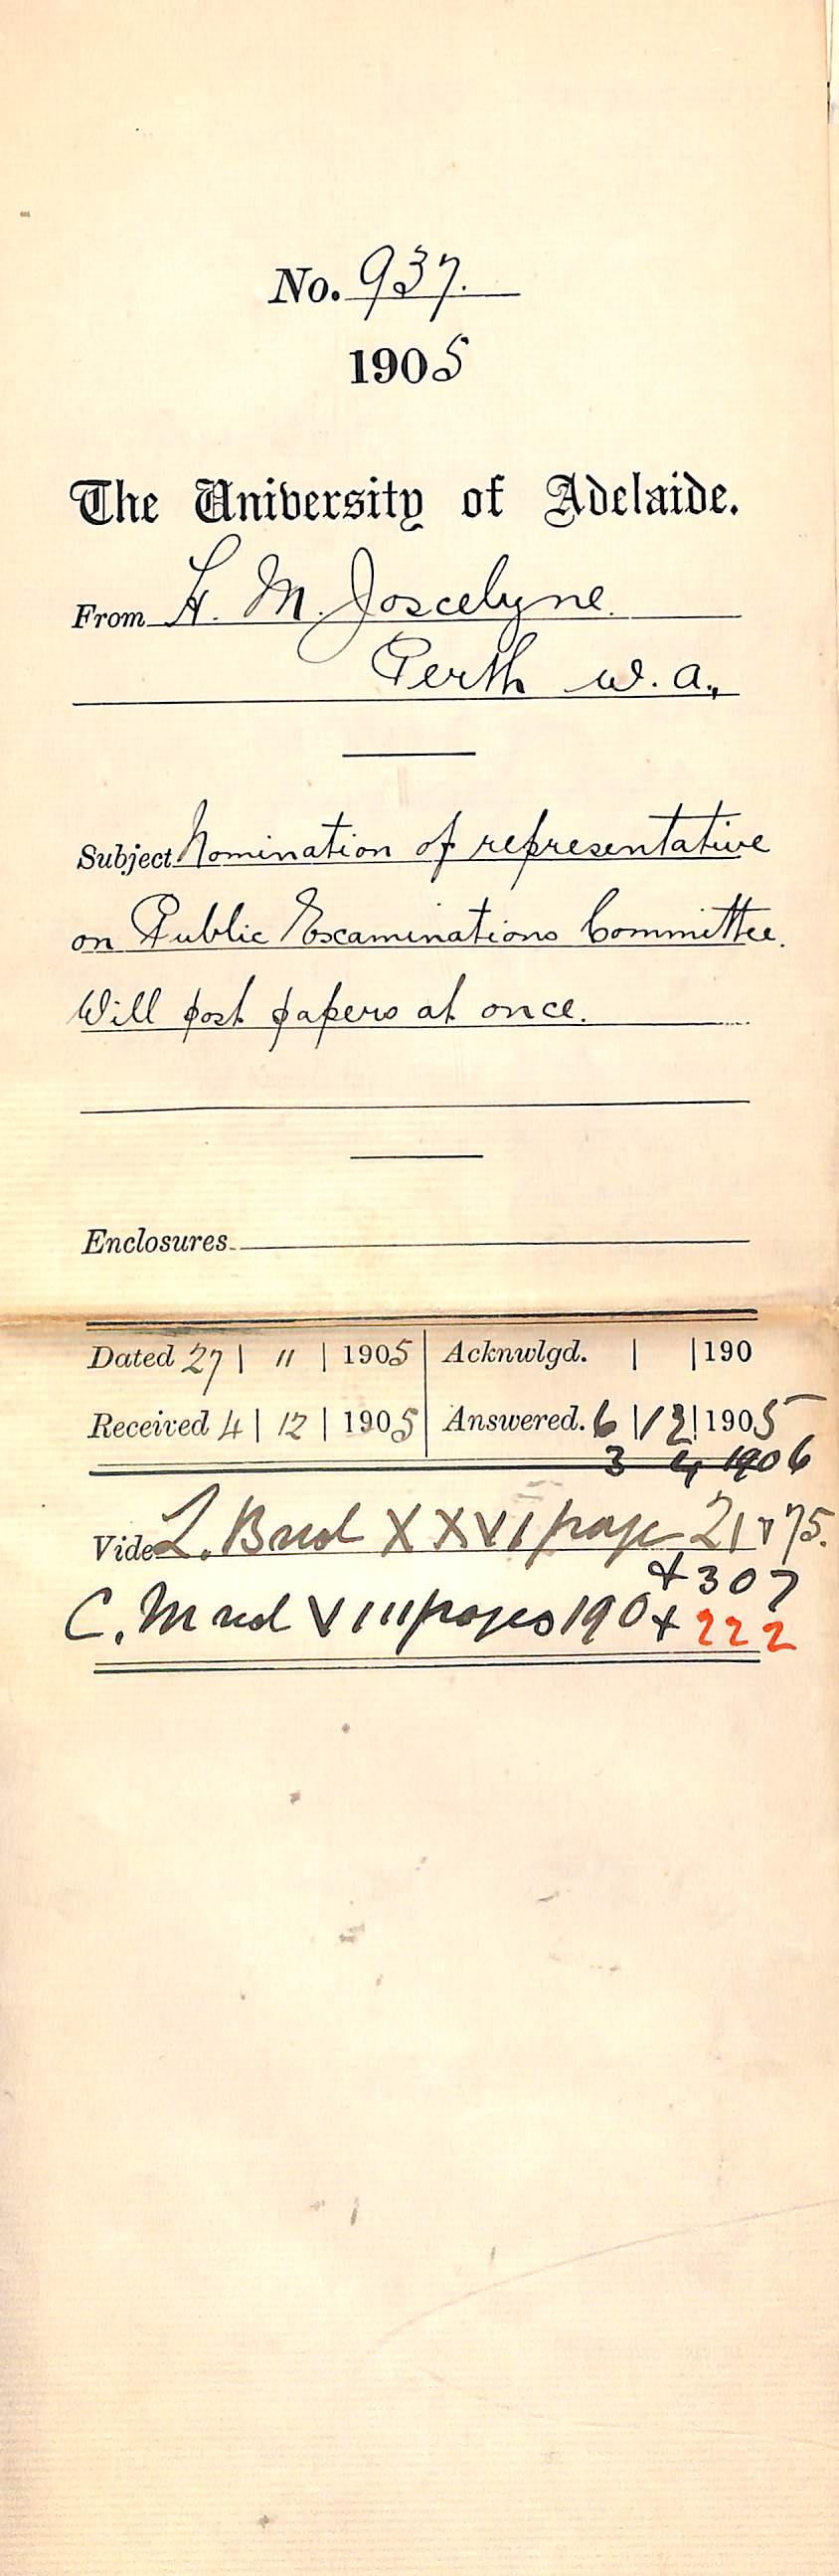 No. 937.
1905
The University of Adelaide.
From H. M. Joscelyne.
Perth W. A.,
Subject Nomination of representative
on Public Examinations Committee.
Will post papers at once.
Enclosures
Dated 27 | 11 | 1905 Acknwlgd. | | 190
Received 4 | 12 | 1905 Answered. 6 | 12 | 1905
3 4 1906
Vide L. B XXVI page 21 + 75.
+ 307
C. M VIII pages 190 + 222